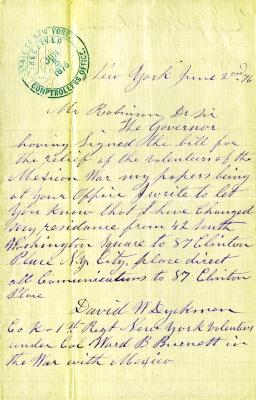 STATE OF NEW YORK
RECEIVED
JUN
1876
COMPTROLLER'S OFFICE.
New York June 2nd 76
Mr Robinson Dr Sir
The Governor
having Signed the bill for
the relief of the Volunteers of the
Mexican War my papers being
at Your Office I write to let
You know that I have Changed
my residance from 42 South
Washington Square to 87 Clinton
Place N.Y. City, please direct
all Comunications to 87 Clinton
Place
David W Dyckman
Co K - 1st Regt New York Volunteers
under Col Ward B Burnett in
the War with Mexico